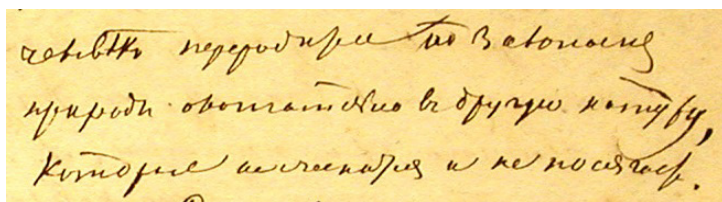 человѣкъ переродится по законамъ
природы окончательно въ другую натуру,
которая не женится и не посягаетъ.